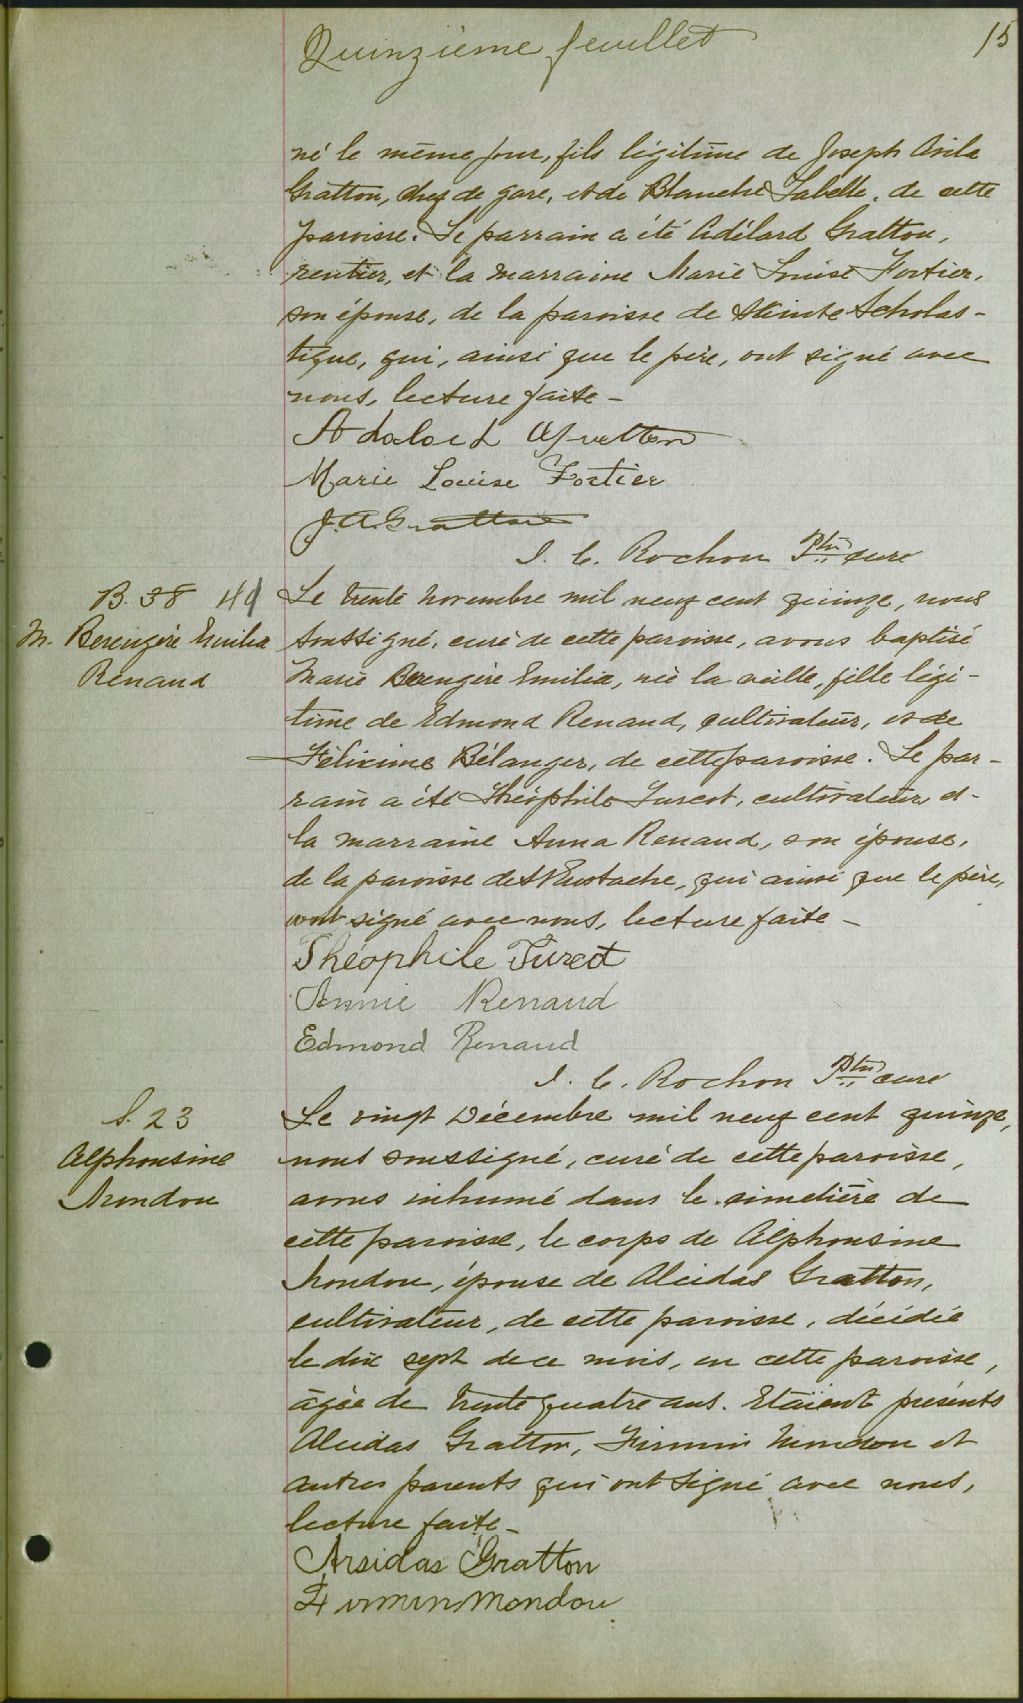 Quinzième feuillet
15
né le même jour, fils légitime de Joseph Avila
Gratton, chef de gare, et de Blanche Labelle, de cette
paroisse. Le parrain a été Adélard Gratton,
rentier, et la marraine Marie Louise Fortier,
son épouse, de la paroisse de Sainte Scholas-
tique, qui, ainsi que le père, ont signé avec
nous, lecture faite -
Adalard Gratton
Marie Louise Fortier
J. A. Gratton
J. C. Rochon Ptre curé
B. 38 49
M. Berengère Emilia
Renaud
Le trente novembre mil neuf cent quinze, nous
soussigné, curé de cette paroisse, avons baptisé
Marie Berengère Emilia, née la veille, fille légi-
time de Edmond Renaud, cultivateur, et de
Félixine Bélanger, de cette paroisse. Le par-
rain a été Théophile Turcot, cultivateur et
la marraine Anna Renaud, son épouse,
de la paroisse de St Eustache, qui ainsi que le père,
ont signé avec nous, lecture faite -
Théophile Turcot
Annie Renaud
Edmond Renaud
J. C. Rochon Ptre curé
S. 23
Alphonsine
Mondou
Le vingt Décembre mil neuf cent quinze,
nous soussigné, curé de cette paroisse,
avons inhumé dans le cimetière de
cette paroisse, le corps de Alphonsine
Mondou, épouse de Alcidas Gratton,
cultivateur, de cette paroisse, décédée
le dix sept de ce mois, en cette paroisse,
âgée de trente quatre ans. Etaient présents
Alcidas Gratton, Firmin Mondou et
autres parents qui ont signé avec nous,
lecture faite -
Arsidas Gratton
Firmin Mondou